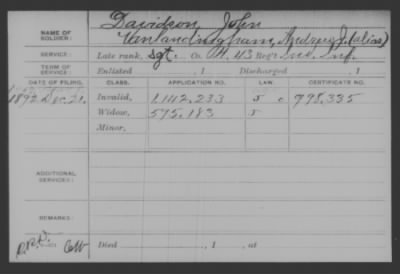 NAME OF SOLDIER: Davidson, John
Vanlandingham, Andrew J. (alias)
SERVICE: Late rank, Sgt. Co. A, 43 Reg't Ind. Inf.
TERM OF SERVICE: Enlisted , 1 Discharged , 1
DATE OF FILING. CLASS. APPLICATION NO. LAW. CERTIFICATE NO.
1892 Dec. 21. Invalid, 1.142.233 798.335
Widow, 575.183
Minor,
ADDITIONAL SERVICES:
REMARKS:
Died , 1 , at